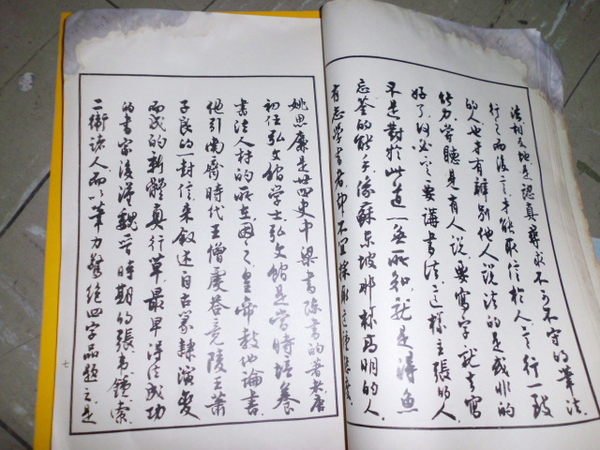 法相反地是認真尋求不可不守的筆法
行之而後言才能取信於人言行一致
的人也才有辨別他人說法的是或非的
能力常聽見有人說要寫字就去寫
好了何必一定要講書法這樣主張的人
不是對於此道一無所知就是得魚
忘筌的能手像蘇東坡那樣高明的人
有志学書者不宜採取這種態度
姚思廉是廿四史中梁書陳書的著者唐
初任弘文館学士弘文館是當時培養
書法人材的所在因之皇帝教他論書
他引南齊時代王僧虔答竟陵王蕭
子良的一封信来叙述自古篆隸演變
而成的新體真行草最早得法成功
的書家後漢魏晉時期的張韋鍾索
二衛諸人而以筆力驚絕四字品題之是
七